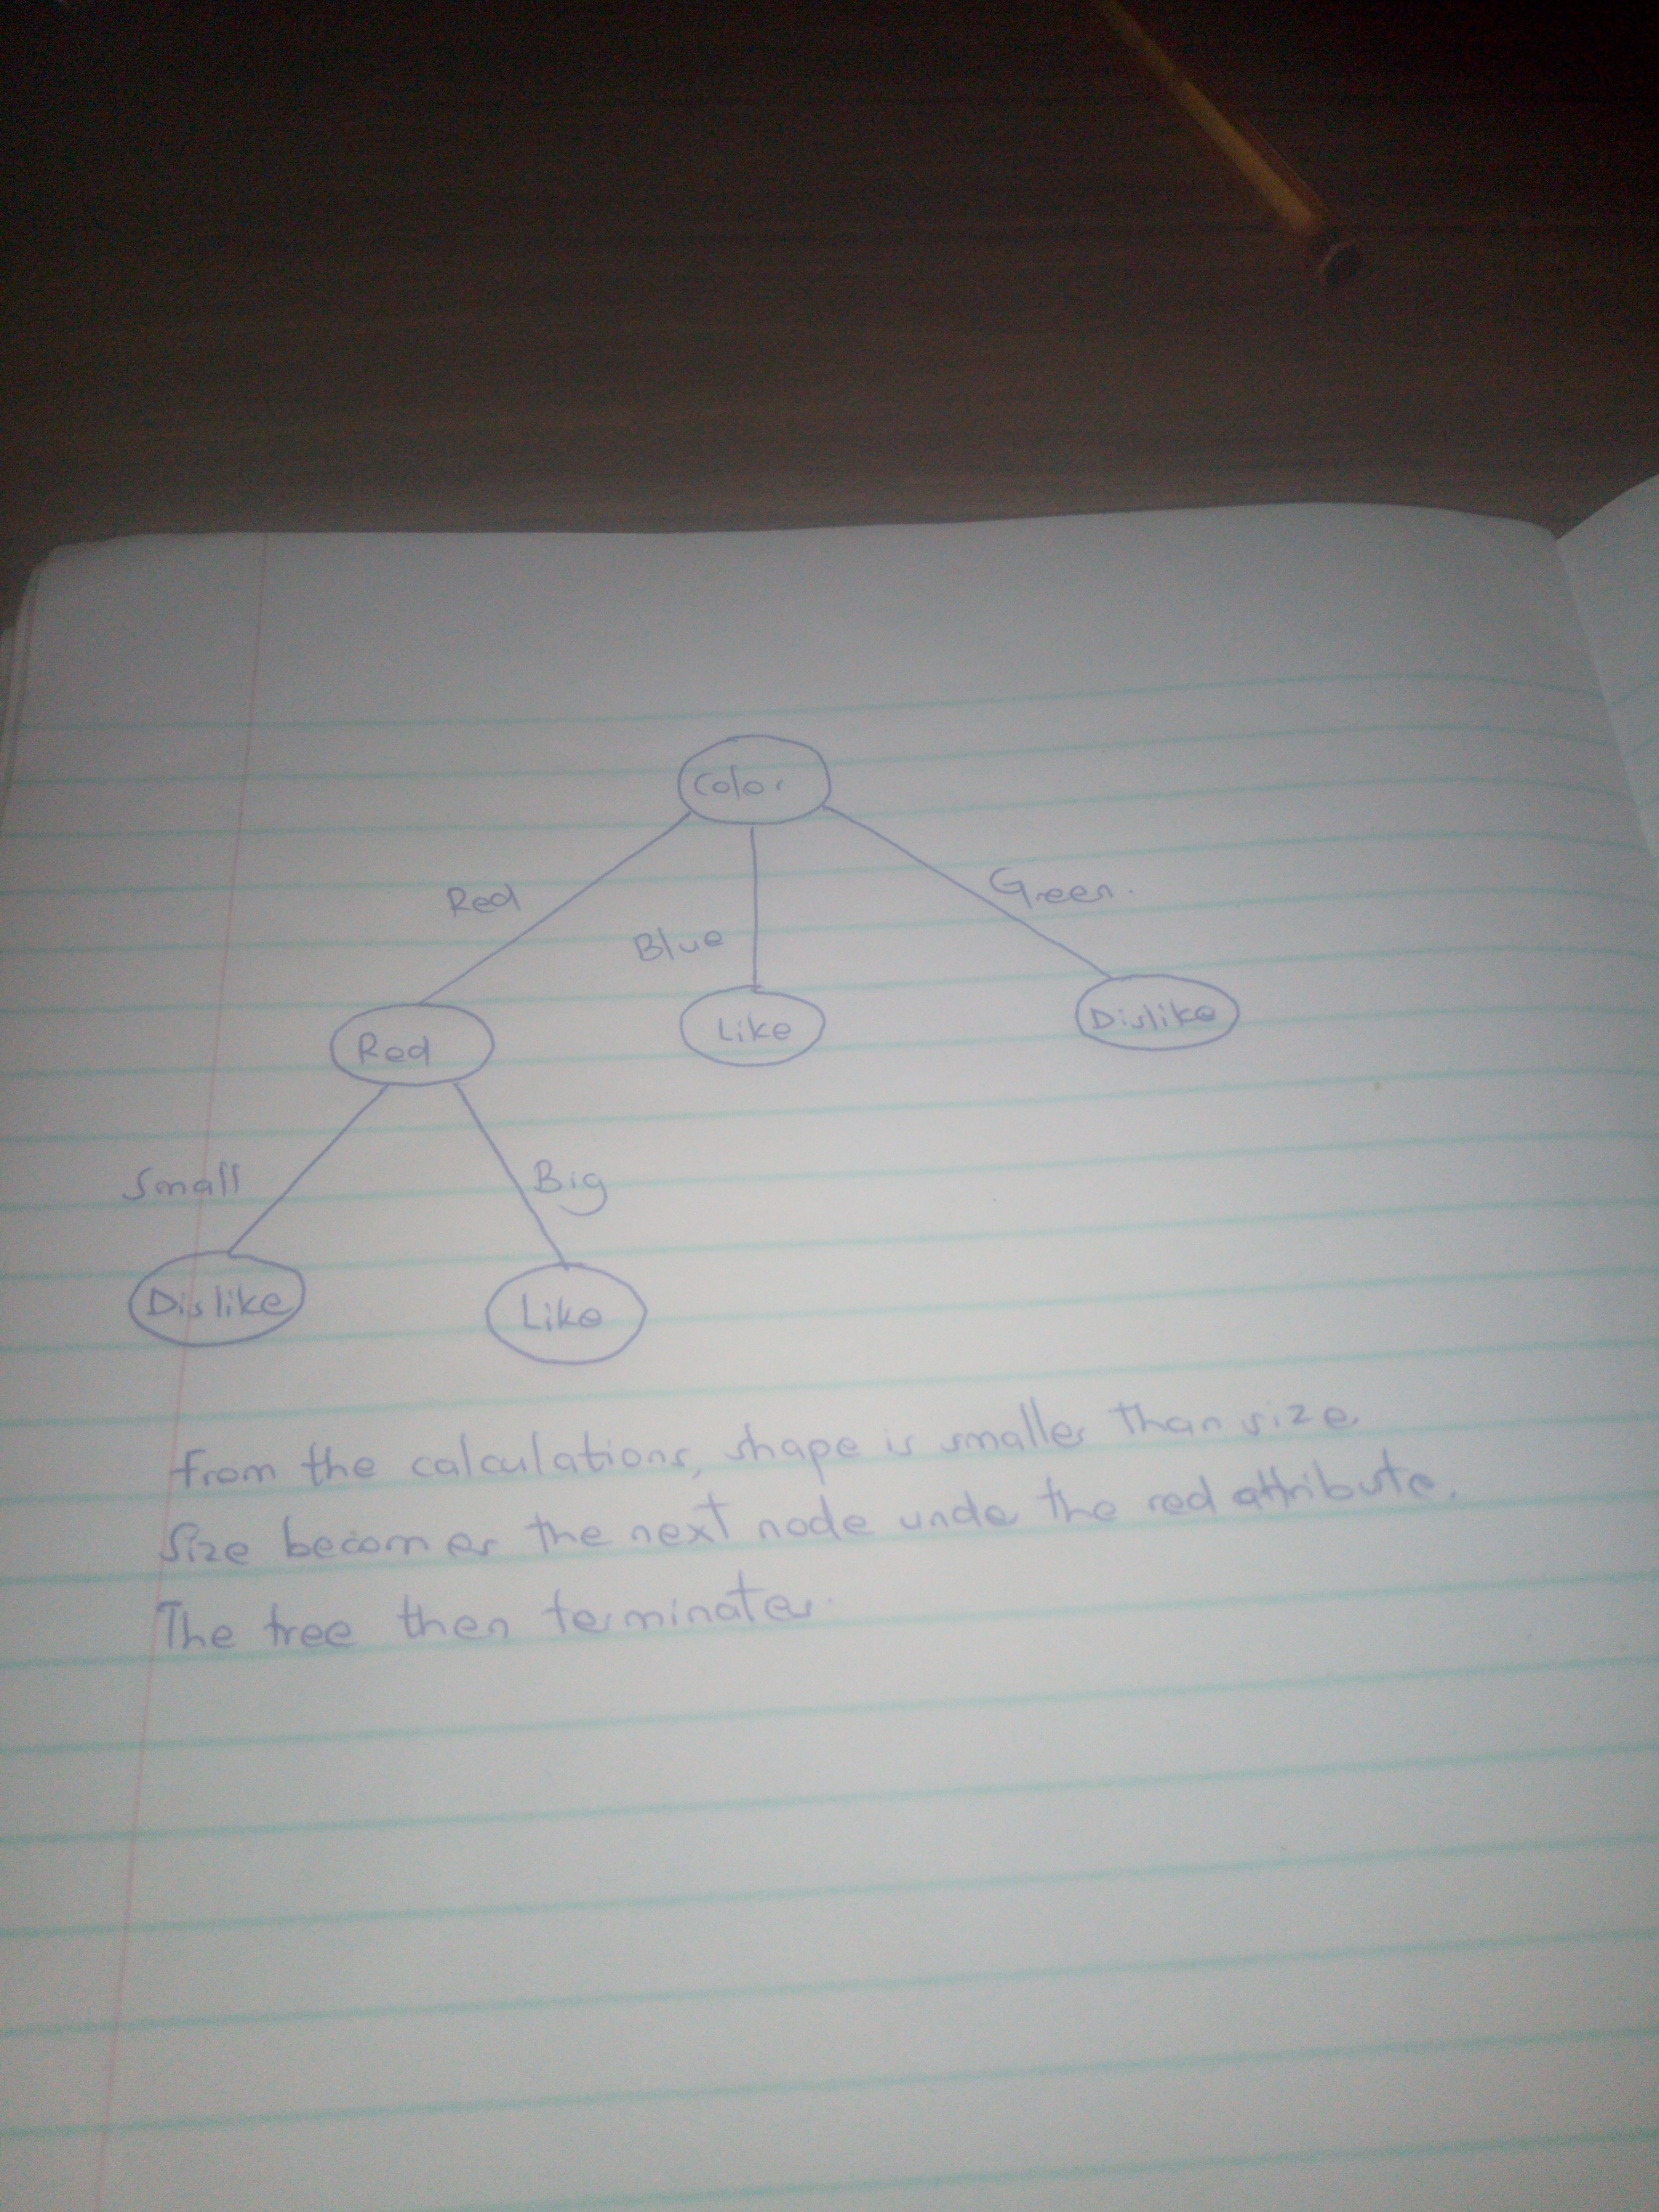 Color
Red
Blue
Green.
Red
Like
Dislike
Small
Big
Dislike
Like
From the calculations, shape is smaller than size.
Size becomes the next node under the red attribute.
The tree then terminates.